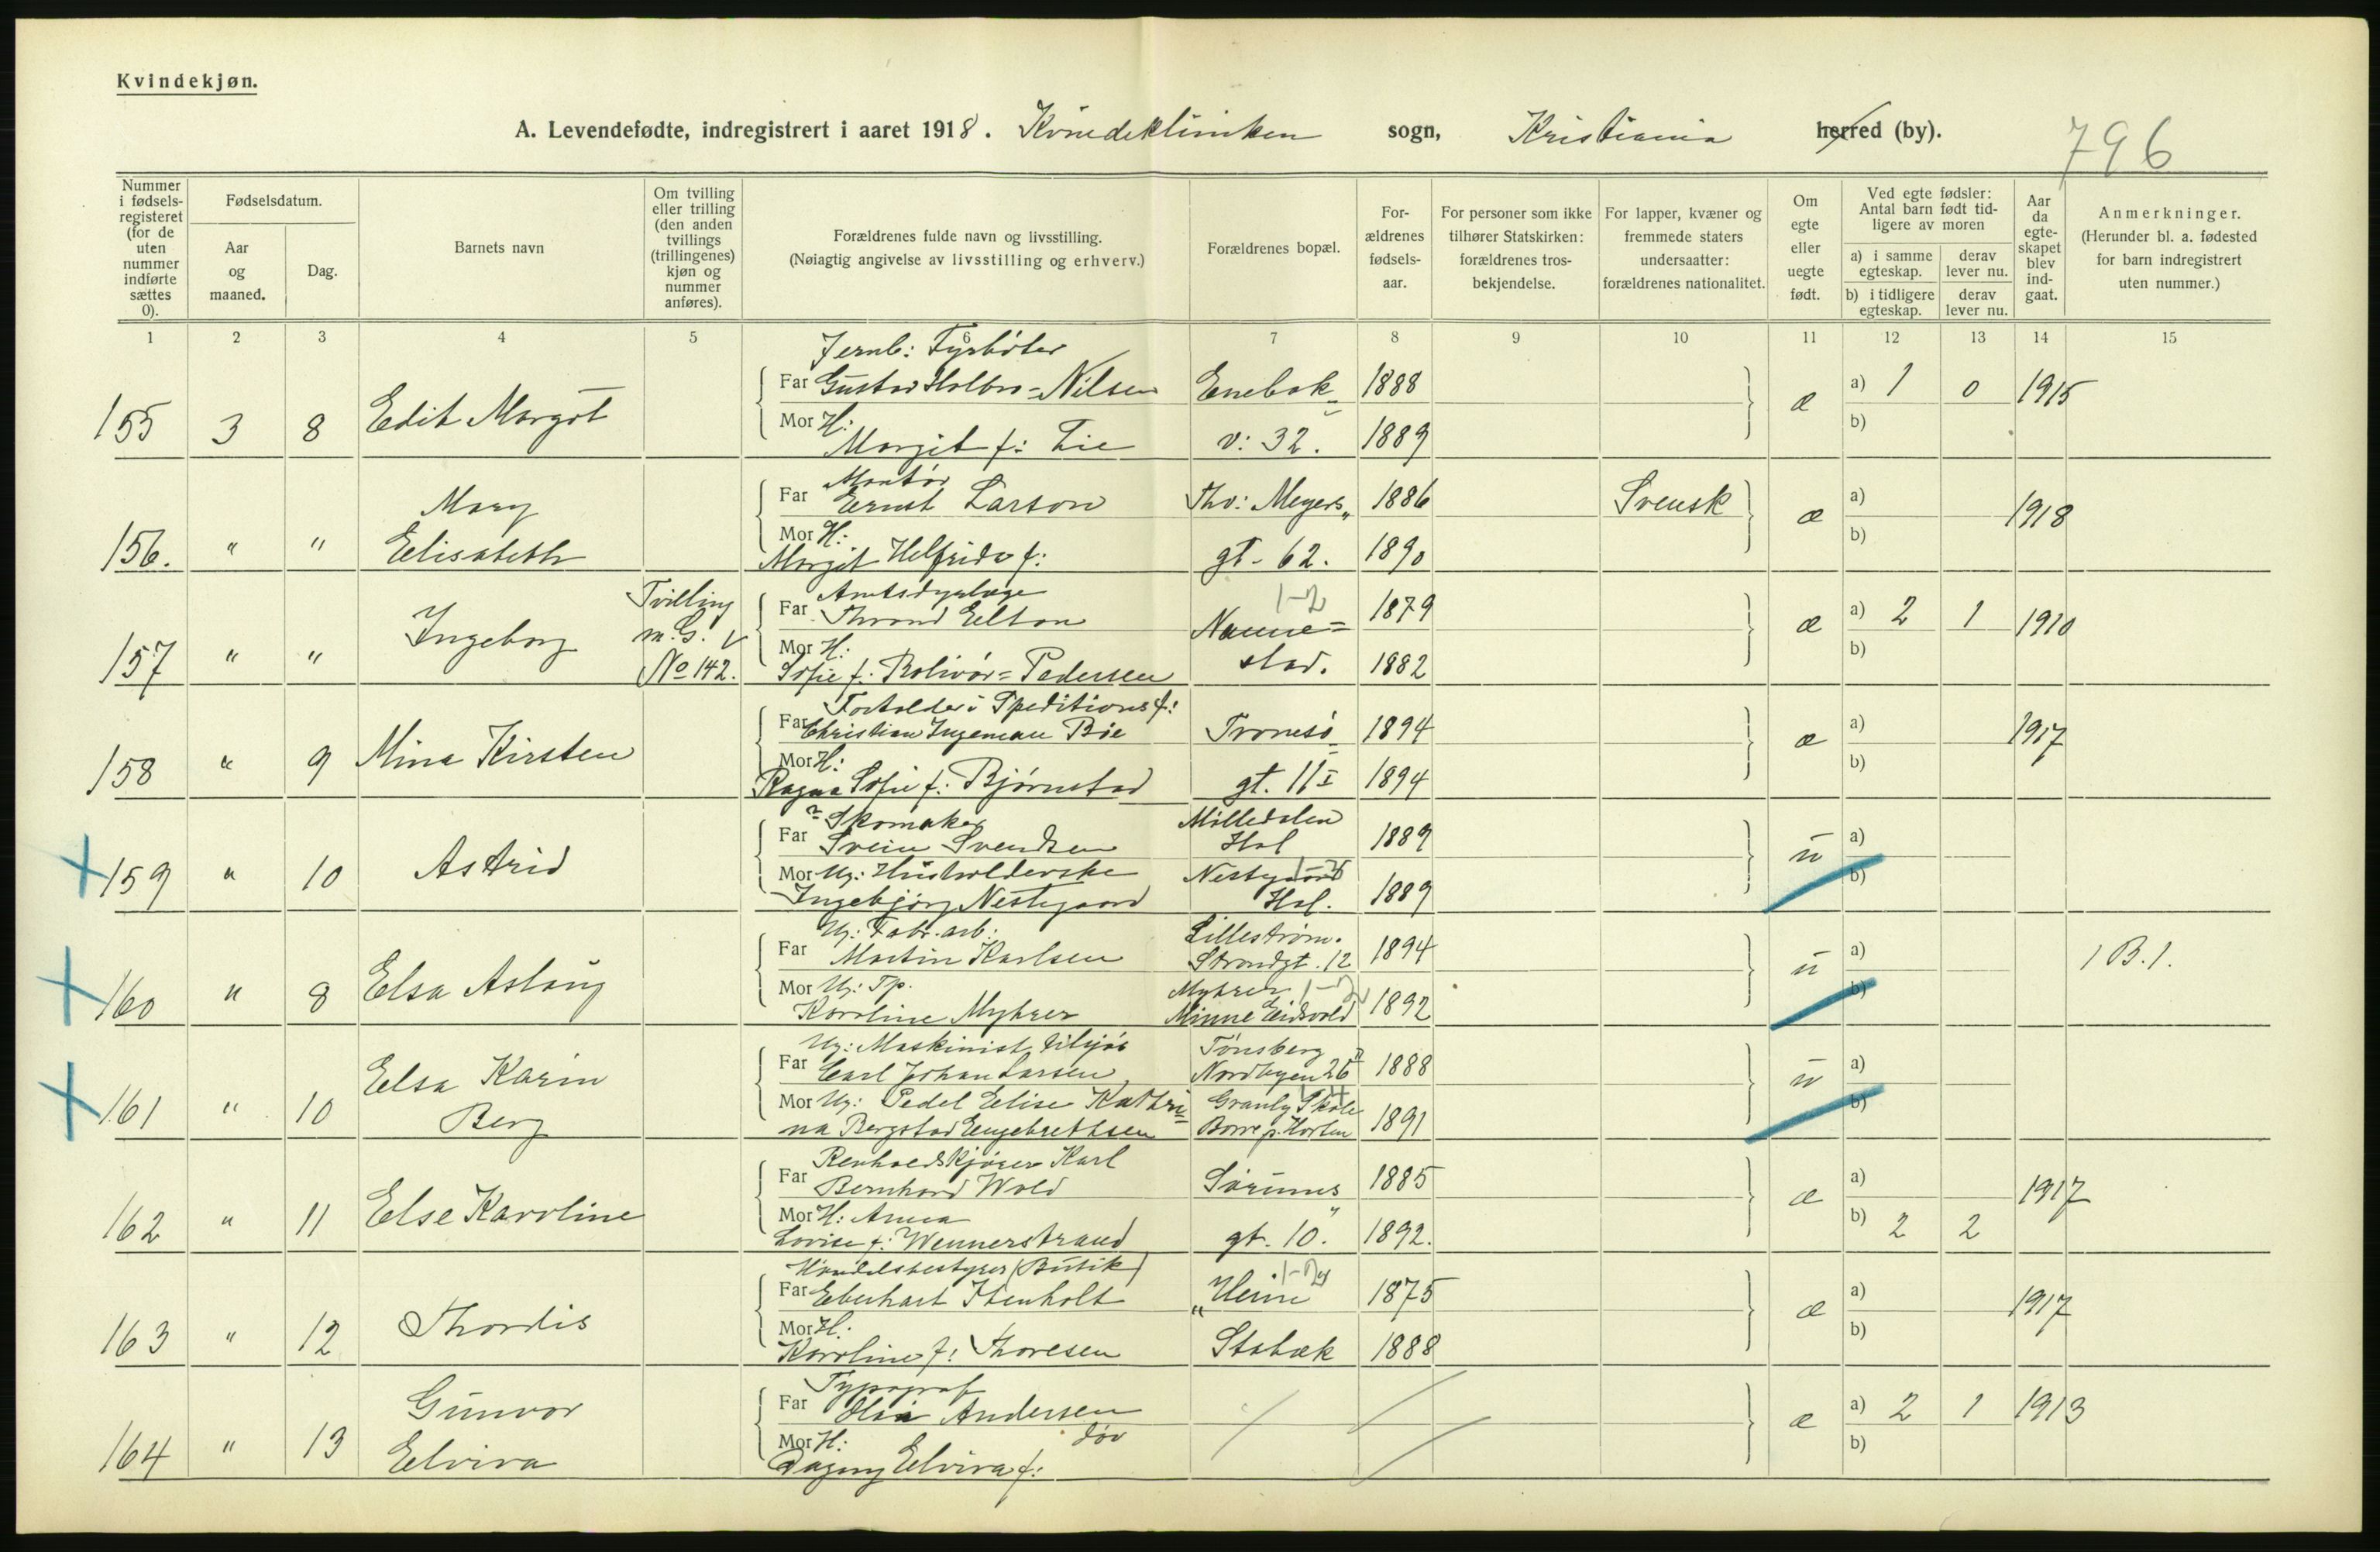 Kvindekjøn.
A. Levendefødte, indregistrert i aaret 1918. Kvindeklinikken sogn, Kristiania herred (by).
796
Nummer i fødsels-registeret (for de uten nummer indførte sættes 0).
Fødselsdatum.
Aar og maaned.
Dag.
Barnets navn
Om tvilling eller trilling (den anden tvillings (trillingenes) kjøn og nummer anføres).
Forældrenes fulde navn og livsstilling.
(Nøiagtig angivelse av livsstilling og erhverv.)
Forældrenes bopæl.
For-ældrenes fødsels-aar.
For personer som ikke tilhører Statskirken: forældrenes tros-bekjendelse.
For lapper, kvæner og fremmede staters undersaatter: forældrenes nationalitet.
Om egte eller uegte født.
Ved egte fødsler: Antal barn født tid-ligere av moren
a) i samme egteskap. derav lever nu.
b) i tidligere egteskap. derav lever nu.
Aar da egte-skapet blev ind-gaat.
Anmerkninger.
(Herunder bl. a. fødested for barn indregistrert uten nummer.)
1 2 3 4 5 6 7 8 9 10 11 12 13 14 15
Jernb: Fyrbøter
Far Gustav Holbro=Nilsen Enebak= 1888 a) 1 0 1915
155 3 8 Edit Margot æ
Mor H: b)
Margit f: Lie v: 32. 1889
Montør
Far Ernst Larson Thv: Meyers„ 1886 Svensk a)
Mary æ 1918
156. " " Elisabeth Mor H: b)
Margit Helfrida f: gt- 62. 1890
Tvilling
Far Thrond Elton 1-2 1879 a) 2 1 1910
157 " " Ingeborg m. G. v Nanne= æ
No 142. Mor H: b)
Sofie f: Bolivár=Pedersen stad. 1882
Forholder i Speditionsf:
Far Christian Ingeman Bøe Tromsø= 1894 a) 1917
158 " 9 Mina Kirsten æ
Mor H: b)
Ragna Sofie f: Bjørnstad gt. 11 I 1894
Skomaker Milledalen
Far Svein Svendsen Hol 1889 a)
159 " 10 Astrid u
Mor Ug: Husholderske Nestegaard b)
Ingebjørg Nestegaard Hol. 1889
Ug: Fabr. arb: Lillestrøm.
Far Martin Karlsen Strandgt. 12 1894 a)
160 " 8 Elsa Aslaug u 1 B. 1.
Mor Ug: Tp. Myhrer 1-2 b)
Karoline Myhrer Minne Eidsvold 1892
Ug: Maskinist tilsjøs Tønsberg
Far Carl Johan Larsen Nordbyen 26 II 1888 a)
161 " 10 Elsa Karin u
Berg Mor Ug: Pedel Elise Kathri= Granly Skole b)
na Bergstad Engebrethsen Borre p. Horten 1891
Renholdskjører Karl
Far Bernhard Wold Sørums„ 1885 a)
162 " 11 Else Karoline æ 1917
Mor H: Anna b) 2 2
Lovise f: Wennerstrand gt. 10. 1892.
Handelsbestyrer (Butik)
Far Eberhart Stenholt „Heim 1875 a)
163 " 12 Thordis æ 1917
Mor H: b)
Karoline f: Thoresen Stabæk 1888
Typograf
Far Olai Andersen a) 2 1 1913
164 " 13 Gunvor æ
Elvira Mor H: døv b)
Dagny Elvira f: